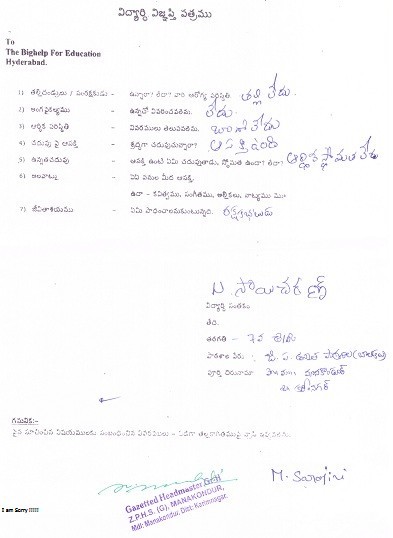 విద్యార్థి విజ్ఞప్తి పత్రము
To
The Bighelp For Education
Hyderabad.
1) తల్లిదండ్రులు / సంరక్షకుడు - ఉన్నారా? లేదా? వారి ఆరోగ్య పరిస్థితి. తల్లి లేదు.
2) అంగవైకల్యము - ఉన్నచో వివరించవలెను. లేదు.
3) ఆర్థిక పరిస్థితి - వివరములు తెలుపవలెను. బాగా లేదు
4) చదువు పై ఆసక్తి - శ్రద్ధగా చదువుచున్నారా? ఆసక్తి ఉంది
5) ఉన్నతచదువు - ఆసక్తి ఉంటే ఏమి చదువుతాడు, స్తోమత ఉందా? లేదా? ఆర్థిక స్తోమత లేదు
6) అలవాట్లు - ఏ ఏ పనుల మీద ఆసక్తి.
ఉదా - కవిత్వము, సంగీతము, ఆటలు, నాట్యము
7) జీవితాశయము - ఏమి సాధించాలనుకుంటున్నది. రక్షకభటుడు
N. సాయిచరణ్
విద్యార్థి సంతకం
పేరు
తరగతి - 7వ
పాఠశాల పేరు : జి. ప. ఉన్నత పాఠశాల (బాలుర)
పూర్తి చిరునామా మానకొండూర్
కరీంనగర్
గమనిక:-
పైన సూచించిన విషయములకు సంబంధించిన వివరములు - విడిగా తెల్లకాగితముపై వ్రాసి ఇవ్వగలరు.
Gazetted Headmaster Gr-II
Z.P.H.S. (G), MANAKONDUR,
Mdl: Manakondur, Dist: Karimnagar.
M. Sarojini
I am Sorry !!!!!